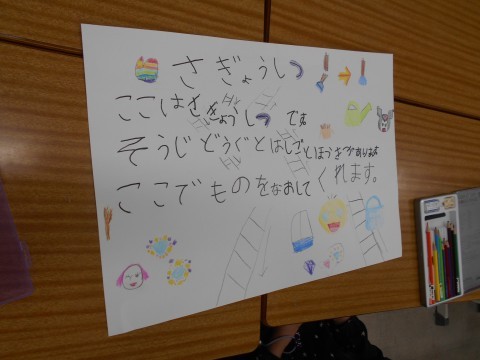 さぎょうしつ
ここはさぎょうしつ です
そうじどうぐとはしごとほうきがあります
ここでものをなおしてくれます。